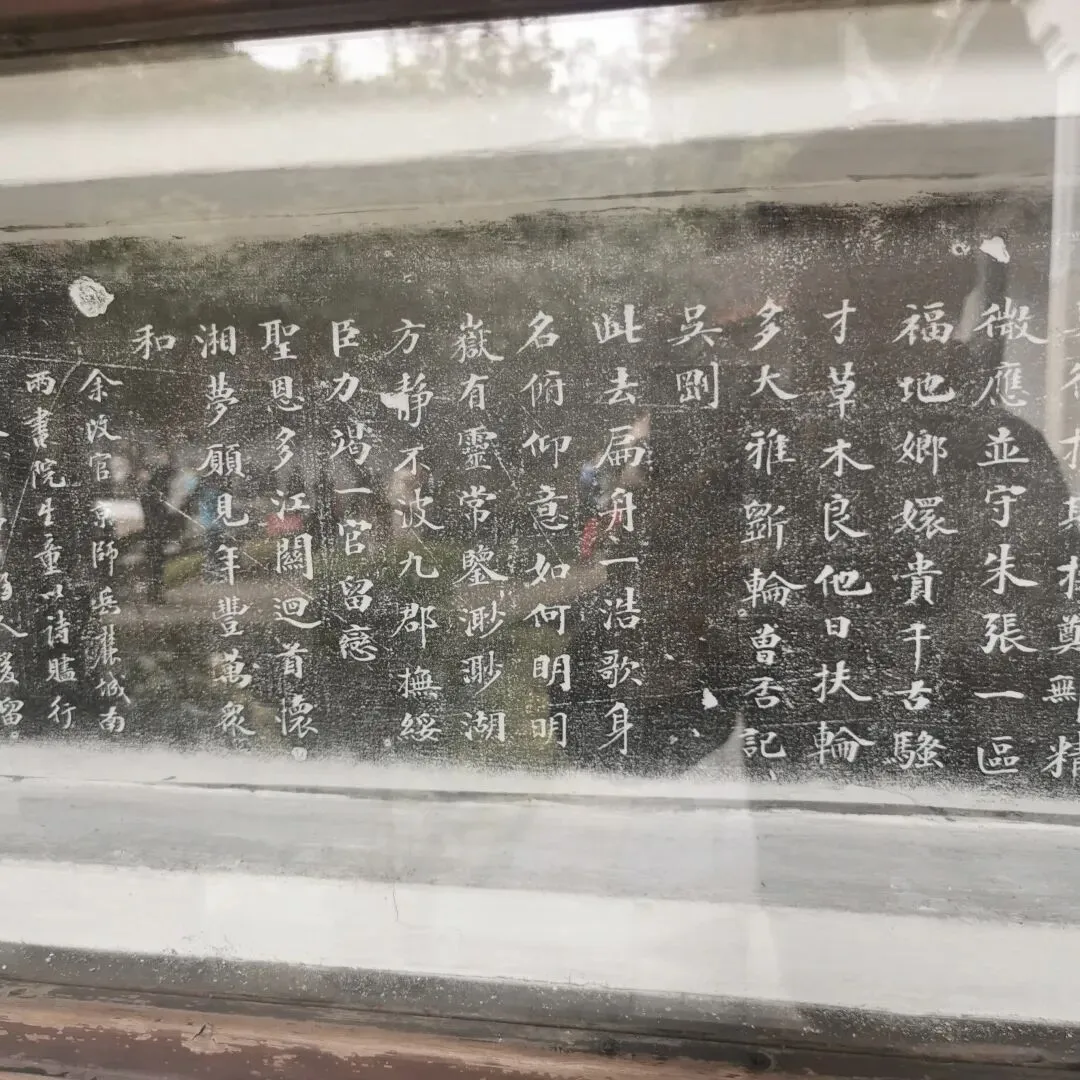 其無精
微應並守朱張一區
福地嫏嬛貴千古騷
才草木良他日扶輪
多大雅斵輪曾否記
吳剛
此去扁舟一浩歌身
名俯仰意如何明明
嶽有靈常鑒渺渺湖
方靜不波九郡撫綏
臣力竭一官留戀
聖恩多江關迴首懷
湘夢願見年豐萬衆
和
余改官京師岳麓城南
兩書院生童以詩贐行
人留